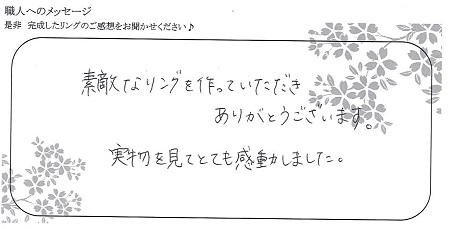 職人へのメッセージ
是非 完成したリングのご感想をお聞かせください♪
素敵なリングを作っていただき
ありがとうございます。
実物を見てとても感動しました。